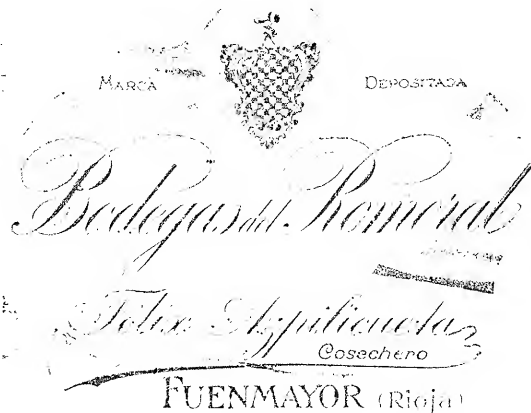 MARCA DEPOSITADA
Bodegas del Romeral
Félix Azpilicueta
Cosechero
FUENMAYOR (Rioja)